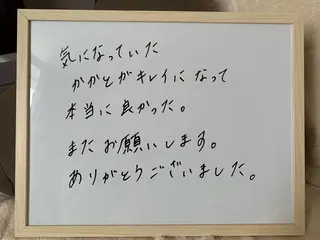 気になっていた
かかとがキレイになって
本当に良かった。
またお願いします。
ありがとうございました。